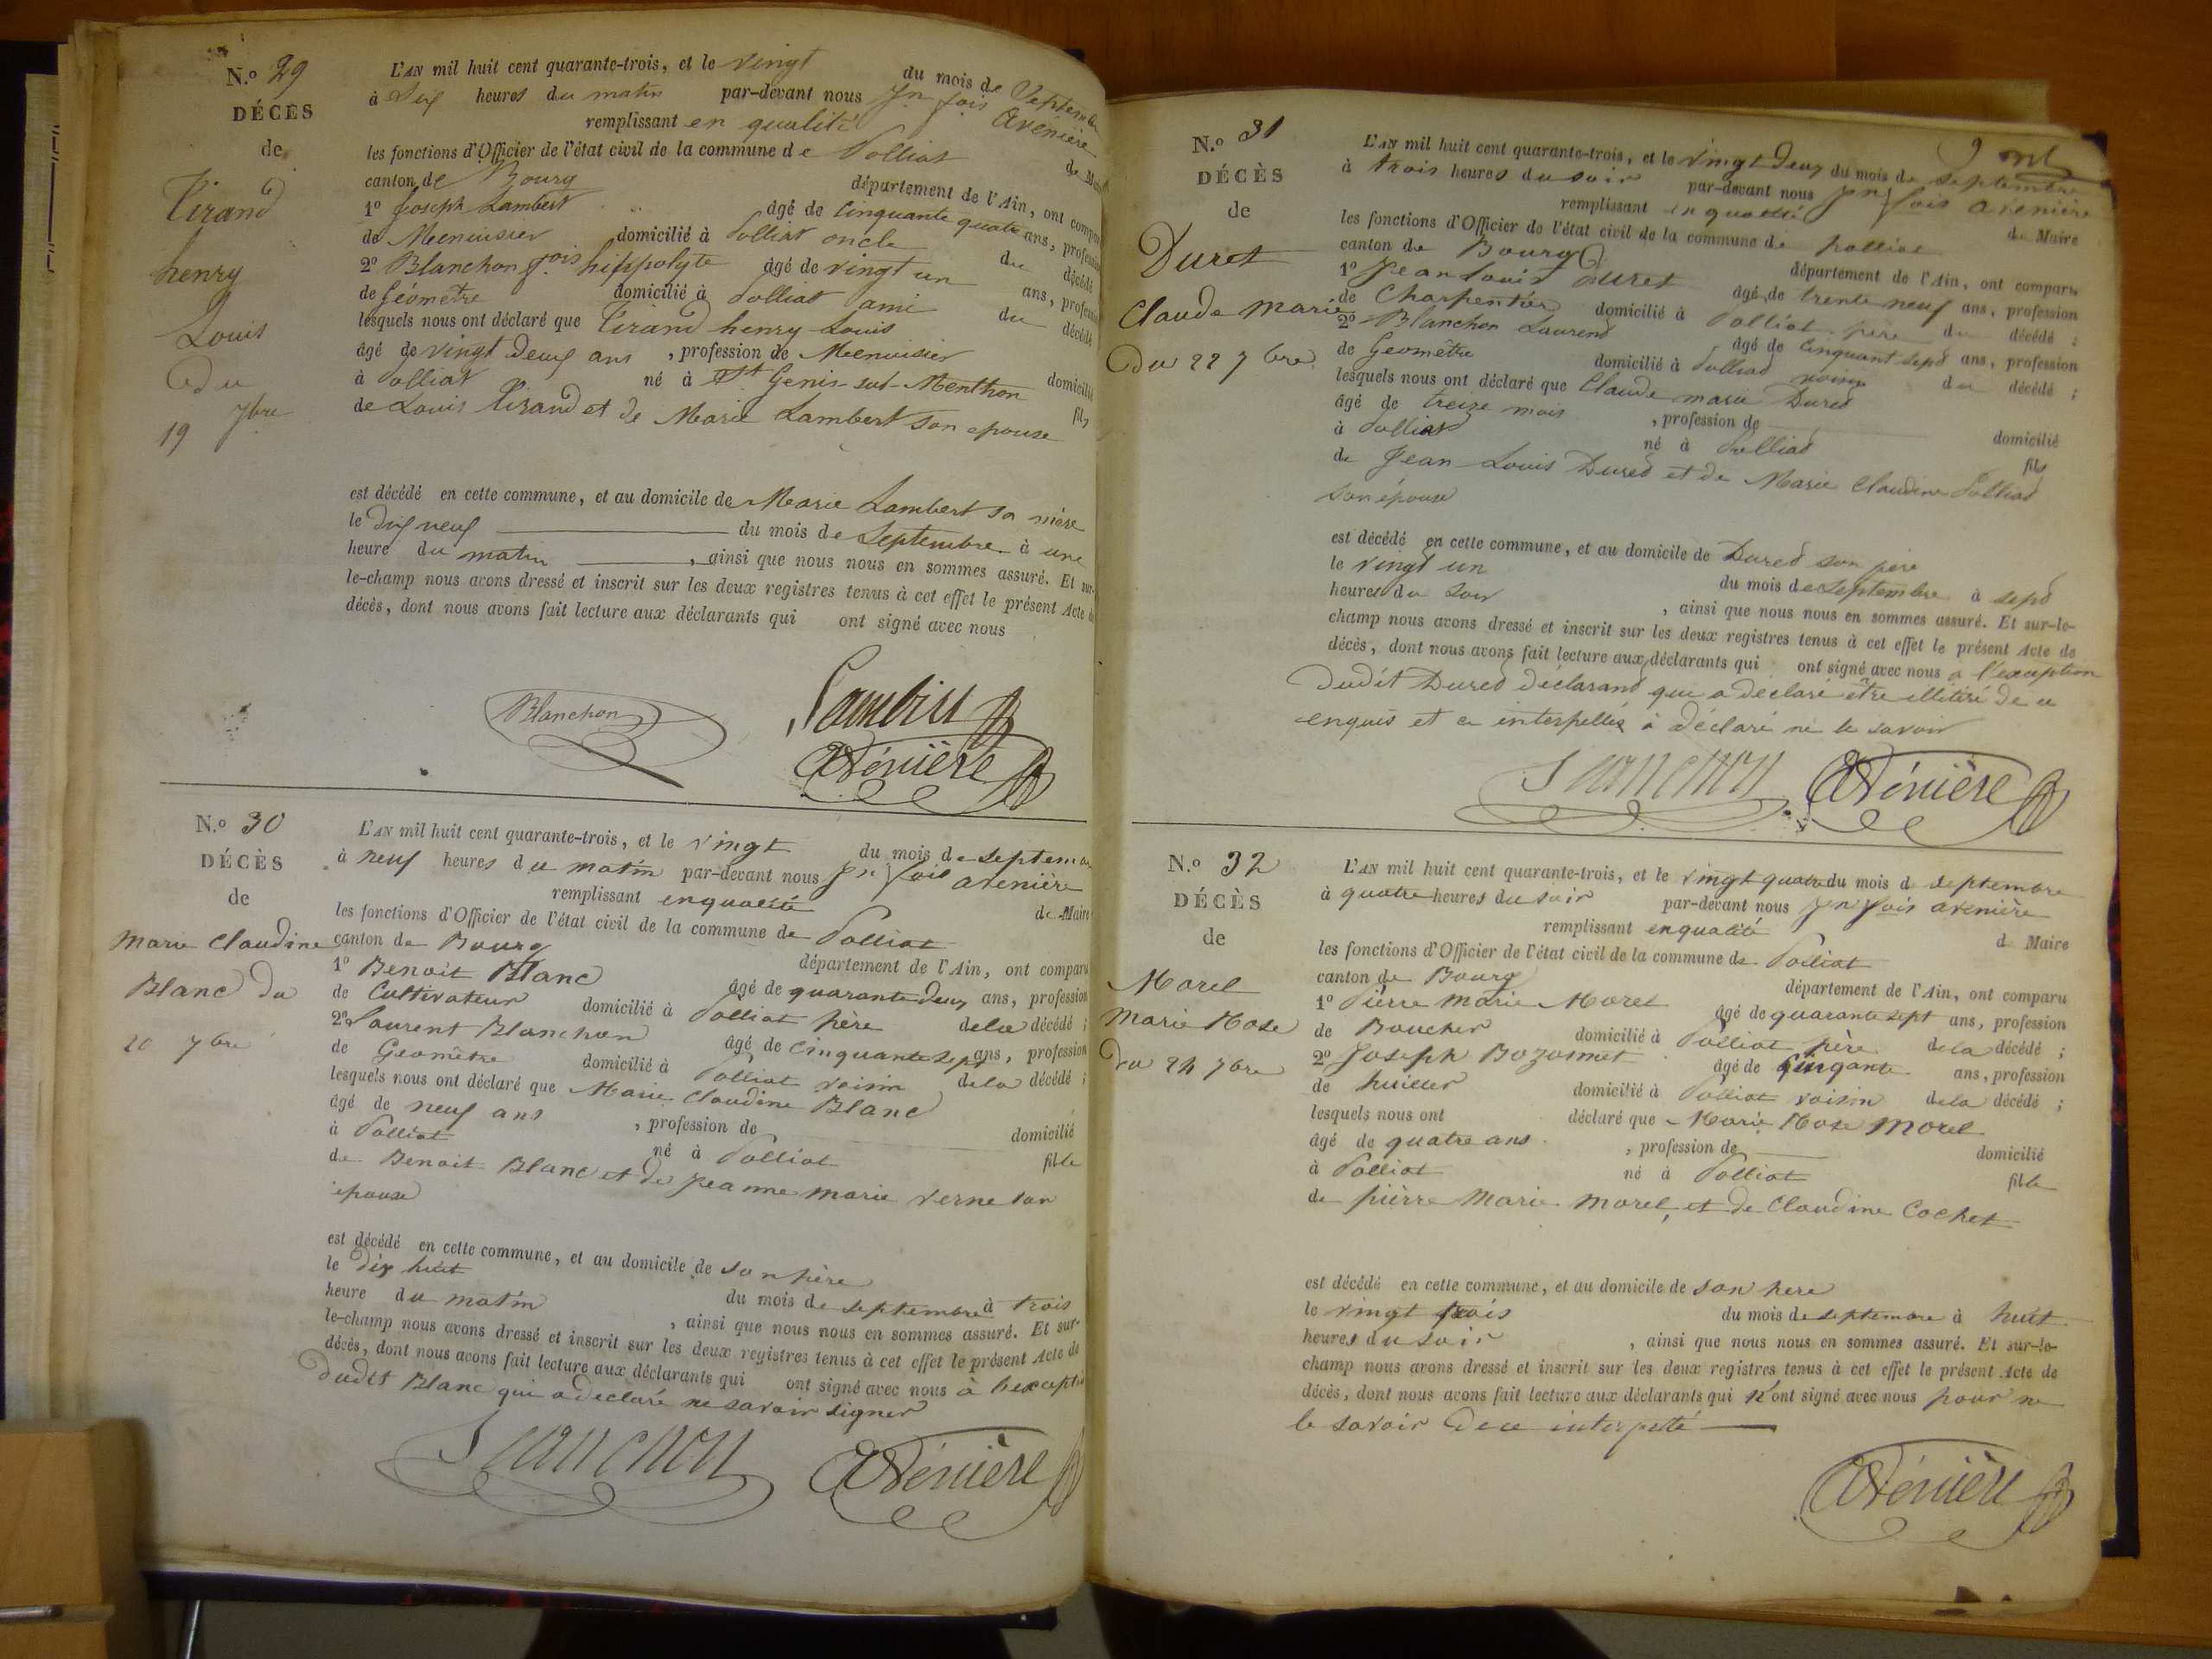 N.o 29
DÉCÈS
de
Tirand
henry
Louis
du
19 7bre
L'AN mil huit cent quarante-trois, et le vingt du mois de Septembre
à dix heures du matin par-devant nous Jn fois avénière
remplissant en qualité de Maire
les fonctions d'Officier de l'état civil de la commune de Polliat
canton de Bourg département de l'Ain, ont comparu
1o Joseph Lambert âgé de Cinquante quatre ans, profession
de Menuisier domicilié à Polliat oncle du décédé
2o Blanchon fois hippolyte âgé de vingt un ans, profession
de Géomètre domicilié à Polliat ami du décédé
lesquels nous ont déclaré que Tirand henry Louis
âgé de vingt deux ans, profession de Menuisier domicilié
à Polliat né à St Genis-sur-Menthon fils
de Louis Tirand et de Marie Lambert son epouse
est décédé en cette commune, et au domicile de Marie Lambert sa mère
le dix neuf du mois de Septembre à une
heure du matin, ainsi que nous nous en sommes assuré. Et sur-
le-champ nous avons dressé et inscrit sur les deux registres tenus à cet effet le présent Acte de
décès, dont nous avons fait lecture aux déclarants qui ont signé avec nous
Blanchon Lambert
Avénière
N.o 30
DÉCÈS
de
Marie Claudine
Blanc du
20 7bre
L'AN mil huit cent quarante-trois, et le vingt du mois de septembre
à neuf heures du matin par-devant nous Jn fois avenière
remplissant enqualité de Maire
les fonctions d'Officier de l'état civil de la commune de Polliat
canton de Bourg département de l'Ain, ont comparu
1o Benoit Blanc âgé de quarante deux ans, profession
de Cultivateur domicilié à Polliat père dela décédé ;
2o Laurent Blanchon âgé de Cinquante sept ans, profession
de Geomètre domicilié à Polliat voisin dela décédé ;
lesquels nous ont déclaré que Marie Claudine Blanc
âgé de neuf ans, profession de domicilié
à Polliat né à Polliat fille
de Benoit Blanc et de jeanne marie verne son
epouse
est décédé en cette commune, et au domicile de son père
le dix huit du mois de septembre à trois
heure du matin, ainsi que nous nous en sommes assuré. Et sur-
le-champ nous avons dressé et inscrit sur les deux registres tenus à cet effet le présent Acte de
décès, dont nous avons fait lecture aux déclarants qui ont signé avec nous à l'exceptio
dudit Blanc qui a declaré ne savoir signer
Blanchon Avénière
N.o 31
DÉCÈS
de
Duret
Claude marie
Du 22 7bre
L'AN mil huit cent quarante-trois, et le vingt deux du mois de septembre
à trois heures du soir par-devant nous Jn fois avenière
remplissant en qualité de Maire
les fonctions d'Officier de l'état civil de la commune de polliat
canton de Bourg département de l'Ain, ont comparu
1o Jean Louis Duret âgé de trente neuf ans, profession
de Charpentier domicilié à Polliat père du décédé ;
2o Blanchon Laurend âgé de Cinquant sept ans, profession
de Geomètre domicilié à Polliad voisin du décédé ;
lesquels nous ont déclaré que Claude marie Dured
âgé de treize mois, profession de domicilié
à Polliad né à Polliad fils
de Jean Louis Dured et de Marie Claudine Polliad
son épouse
est décédé en cette commune, et au domicile de Dured son père
le vingt un du mois de septembre à sepd
heures du soir, ainsi que nous nous en sommes assuré. Et sur-le-
champ nous avons dressé et inscrit sur les deux registres tenus à cet effet le présent Acte de
décès, dont nous avons fait lecture aux déclarants qui ont signé avec nous a l'exception
dudit Dured déclarand qui a declaré être illitéré de ce
enquis et a interpellés à déclaré ne le savoir
Blanchon Avénière
N.o 32
DÉCÈS
de
Morel
Marie Rose
Du 24 7bre
L'AN mil huit cent quarante-trois, et le vingt quatre du mois d septembre
à quatre heures du soir par-devant nous Jn fois avenière
remplissant enqualité d Maire
les fonctions d'Officier de l'état civil de la commune de Polliat
canton de Bourg département de l'Ain, ont comparu
1o Pierre marie Morel âgé de quarante sept ans, profession
de Boucher domicilié à Polliat père dela décédé ;
2o Joseph Bozonnet âgé de Cinqante ans, profession
de huilier domicilié à Polliat voisin dela décédé ;
lesquels nous ont déclaré que Marie Rose Morel
âgé de quatre ans, profession de domicilié
à Polliat né à Polliat fille
de pièrre Marie Morel et de Claudine Cochet
est décédé en cette commune, et au domicile de son père
le vingt trois du mois de septembre à huit
heures du soir, ainsi que nous nous en sommes assuré. Et sur-le-
champ nous avons dressé et inscrit sur les deux registres tenus à cet effet le présent Acte de
décès, dont nous avons fait lecture aux déclarants qui n'ont signé avec nous pour ne
le savoir de ce
Avénière